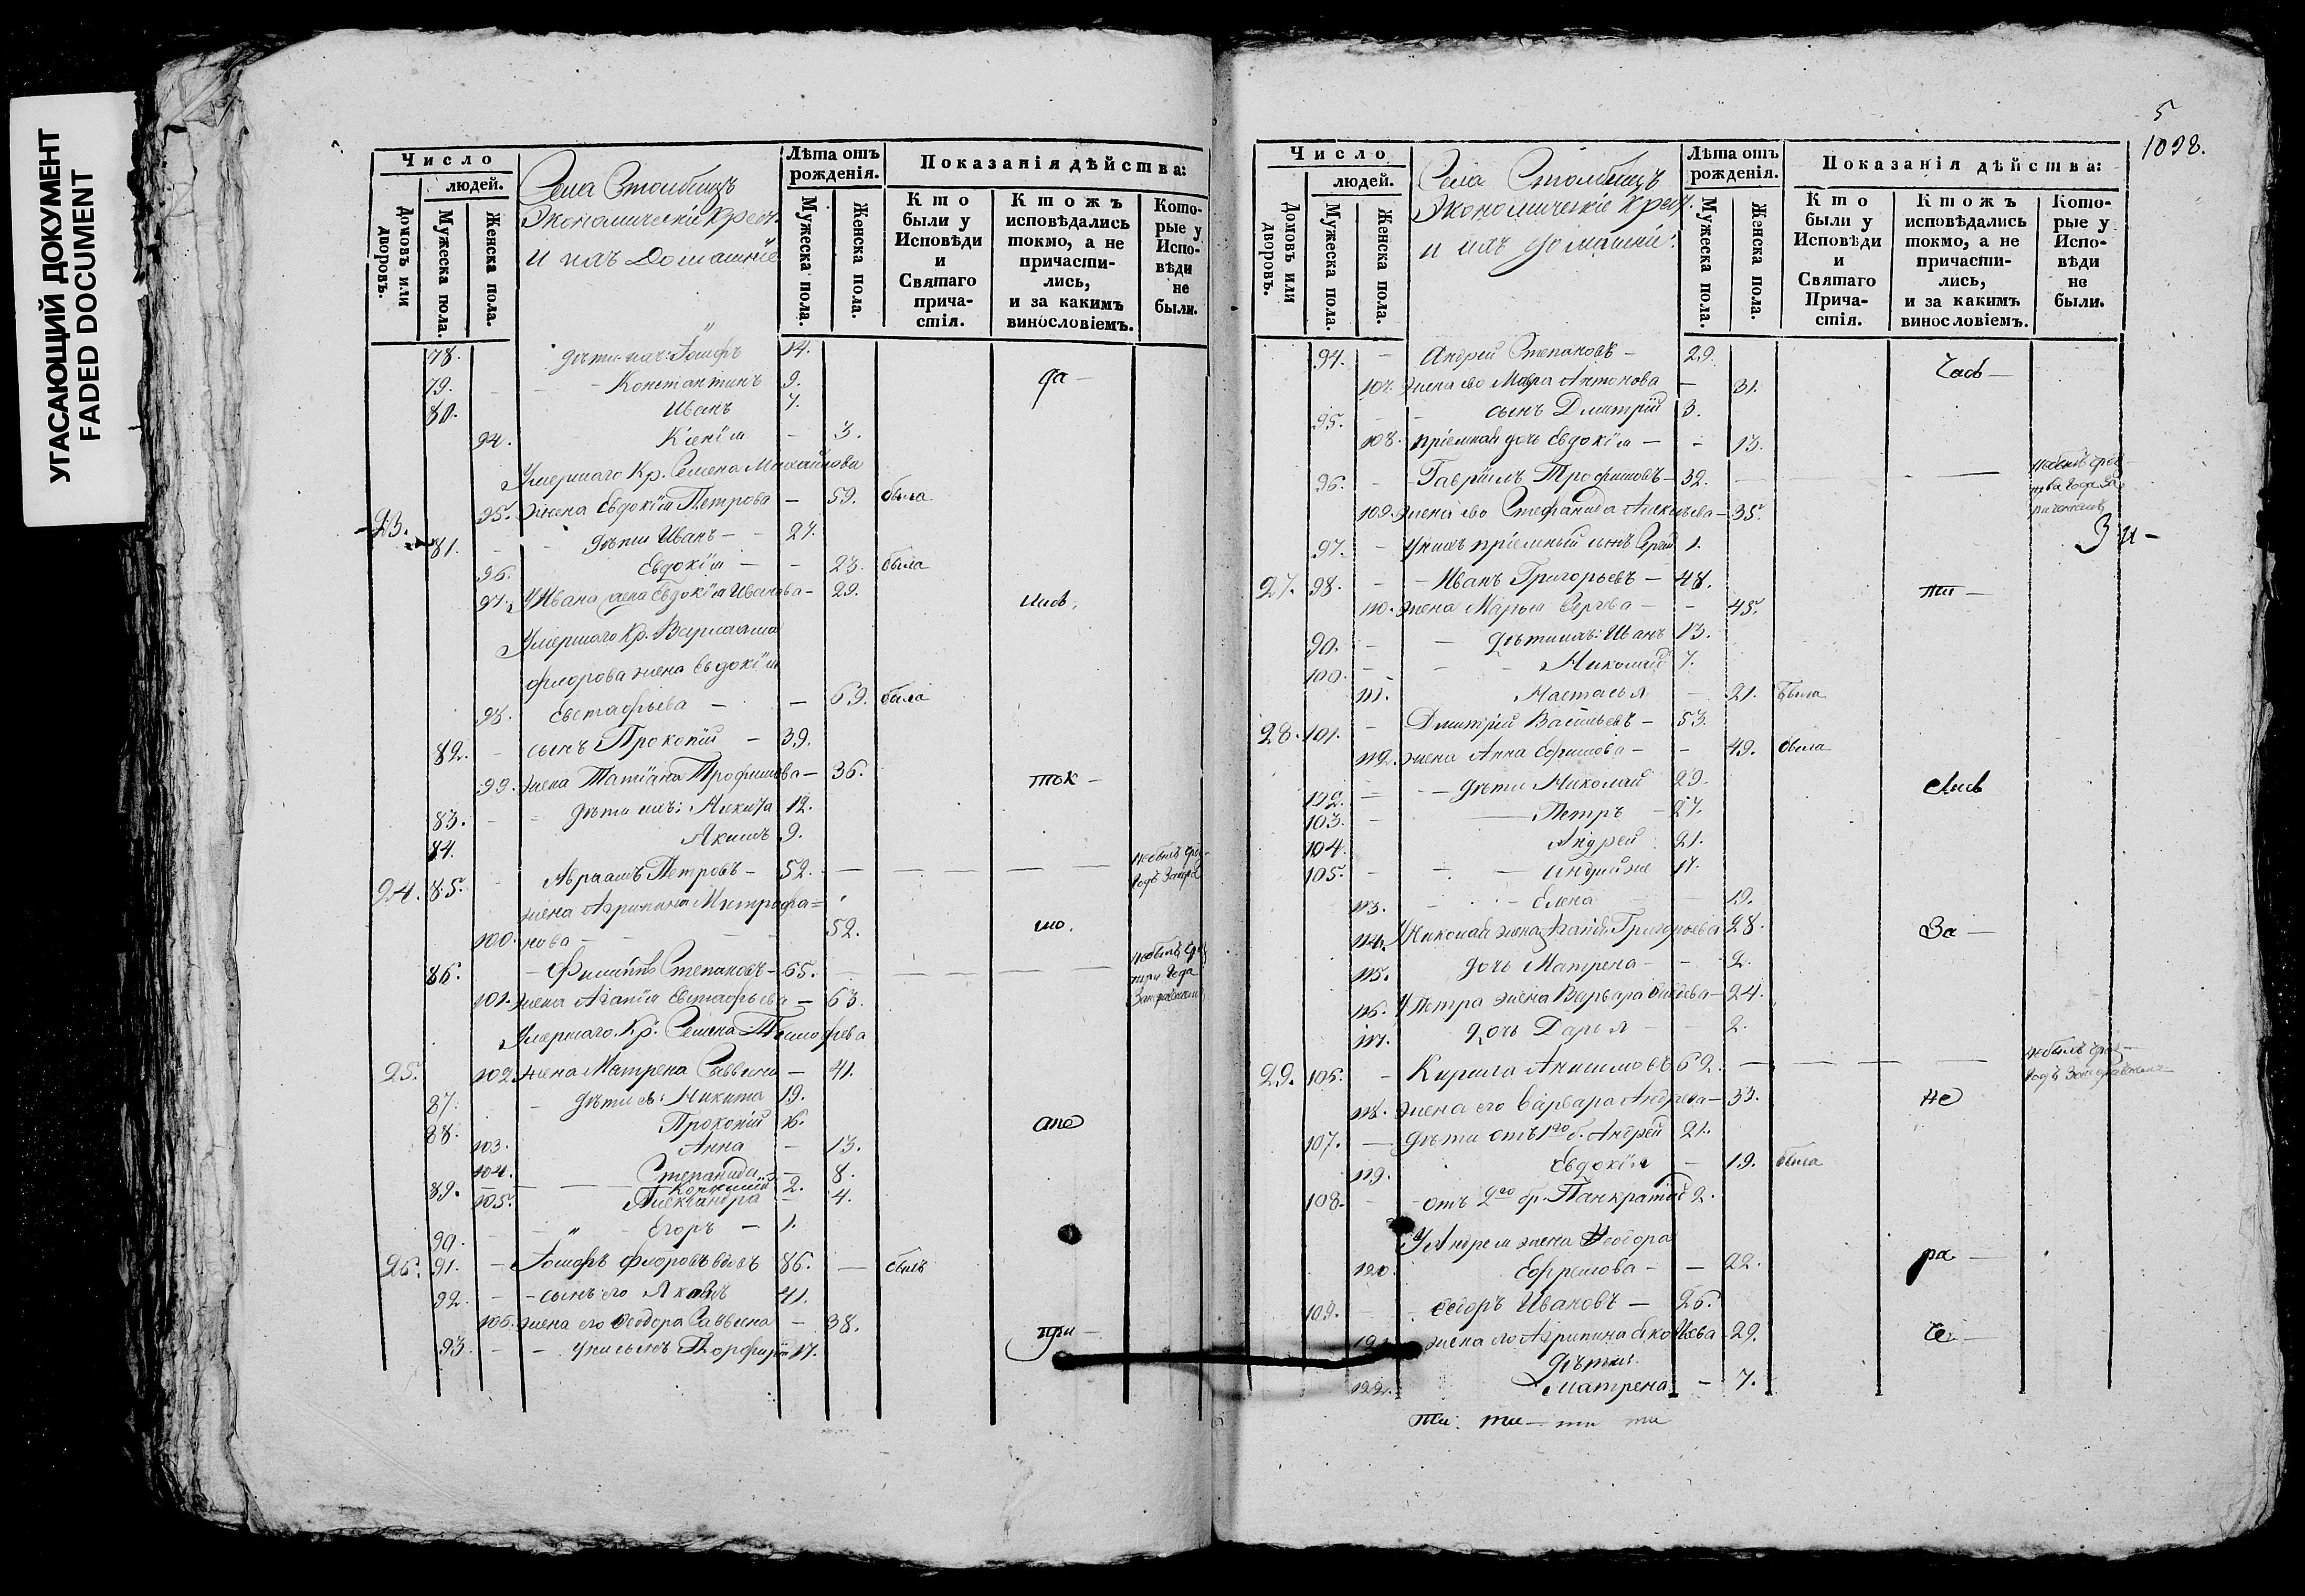 УГАСАЮЩИЙ ДОКУМЕНТ
FADED DOCUMENT
Число
людей.
Домовъ или дворовъ.
Мужеска пола.
Женска пола.
Села Столбищъ
Экономическіе Крест.
и ихъ Домашніе
Лѣта отъ рожденія.
Мужеска пола.
Женска пола.
Показанія дѣйства:
Кто были у Исповѣди и Святаго прича- стія.
Ктожъ исповѣдались токмо, а не причасти- лись, и за какимъ винословіемъ.
Кото- рые у Испо- вѣди не были.
78. дѣти ихъ: Іосифъ 14.
79. Константинъ 9. да
80. Иванъ 7.
94. Ксенія 3.
Умершаго Кр. Семена Михайлова
23. 95. жена Евдокія Петрова 59. была
81. дѣти Иванъ 27.
96. Евдокія 23. была
97. У Ивана жена Евдокія Иванова 29.
Умершаго Кр. Варлаама
Флорова жена Евдокія
98. Евстафьева 69. была
82. сынъ Прокопій 39.
99. жена Татіана Трофимова 36. ток
83. дѣти ихъ: Никита 12.
84. Акимъ 9.
24. 85. Авраамъ Петровъ 52.
жена Агрипина Митрофа=
100. нова 52. мо.
86. Филиппъ Степановъ 65.
101. жена Агапія Евстафьева 63.
Умершаго Кр. Семена Тимофеева
25. 102. жена Матрена Саввина 41.
87. дѣти ея: Никита 19.
88. Прокопій 16. ане
103. Анна 13.
104. Степанида 8.
89. 2.
105. Александра 4.
90. Егоръ 1.
26. 91. Іосифъ Флоровъ вдовъ 86. былъ
92. сынъ его Яковъ 41.
106. жена его Феодора Саввина 38. при
93. у нихъ сынъ Порфирій 17.
5
1098.
Число
людей.
Домовъ или дворовъ.
Мужеска пола.
Женска пола.
Села Столбищъ
Экономическіе Крест.
и ихъ домашніе.
Лѣта отъ рожденія.
Мужеска пола.
Женска пола.
Показанія дѣйства:
Кто были у Исповѣди и Святаго Прича- стія.
Ктожъ исповѣдались токмо, а не причасти- лись, и за какимъ винословіемъ.
Кото- рые у Испо- вѣди не были.
94. Андрей Степановъ 29.
107. жена его Мавра Антонова 31.
95. сынъ Дмитрій 3.
108. пріемная дочь Евдокія 13.
96. Гавріилъ Трофимовъ 32.
109. жена его Стефанида 35.
97. У нихъ пріемный сынъ Сергей 1.
27. 98. Иванъ Григорьевъ 48. ти
110. жена Марья 45.
99. дѣти ихъ: Иванъ 13.
100. Николай 7.
111. Настасья 21. была
28. 101. Дмитрій Васильевъ 53.
112. жена Анна Ефимова 49. была
102. дѣти Николай 29.
103. Петръ 27.
104. Андрей 21.
105. Андрей же 17.
113. Елена 19.
114. У Николая жена Агапія Григорьева 28. За
115. дочь Матрена 2.
116. У Петра жена Варвара 24.
117. дочь Дарья 2.
29. 106. Кирила Анисимовъ 69.
118. жена его Варвара Андреева 53. не
107. дѣти отъ 1го б. Андрей 21.
119. Евдокія 19. была
108. отъ 2го бр. Панкратій 2.
У Андрея жена Феодора
120. Ефремова 22. ра
109. Федоръ Ивановъ 26.
121. жена его Агрипина Яковлева 29.
дѣти:
122. Матрена 7.
ти: ти ти ти